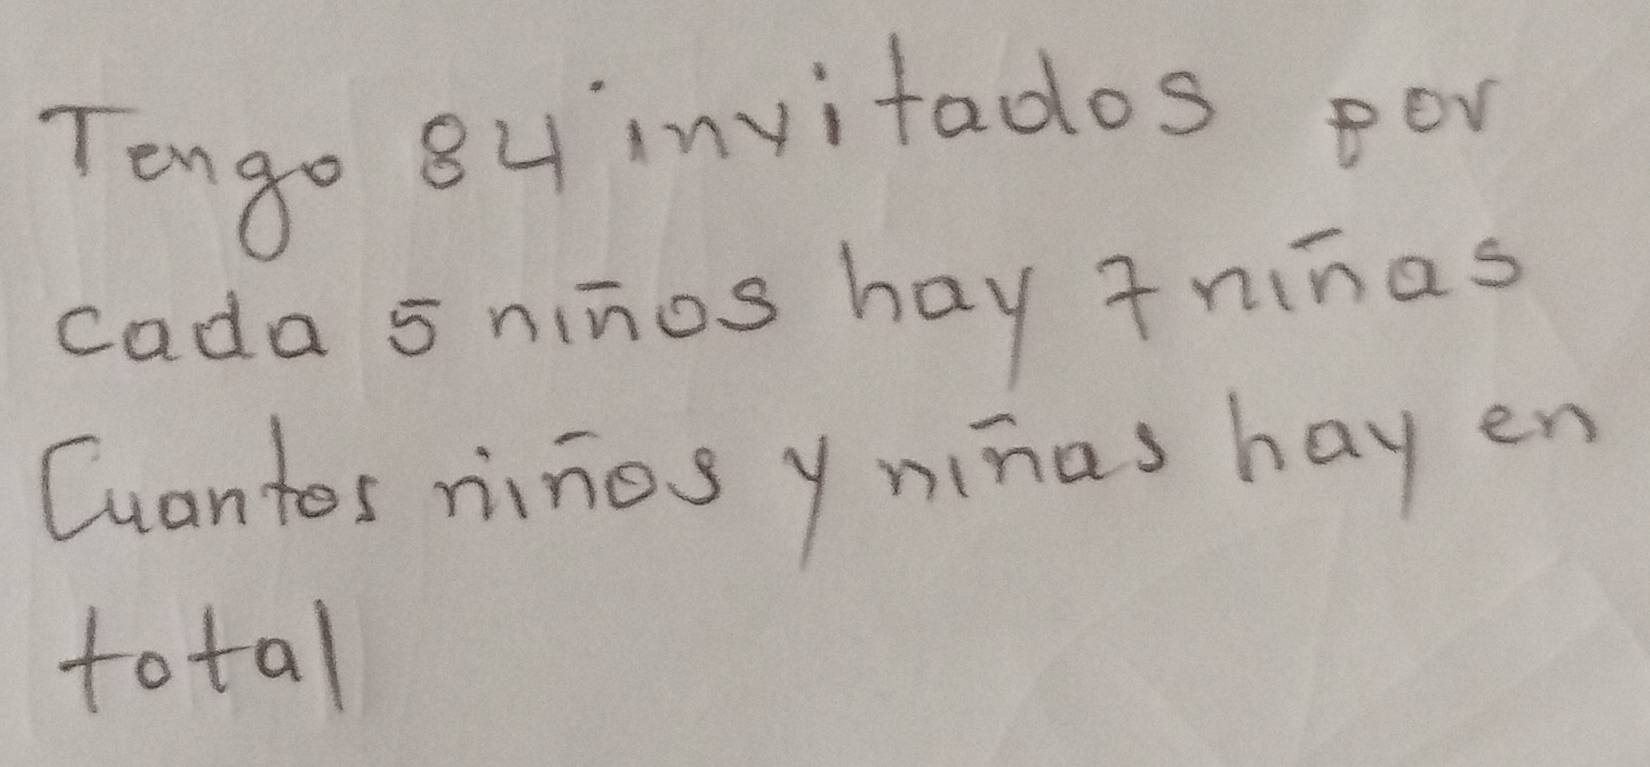 Tengo 84 invitados por
cada 5 niños hay 7 niñas
Cuantos niños y niñas hay en
total